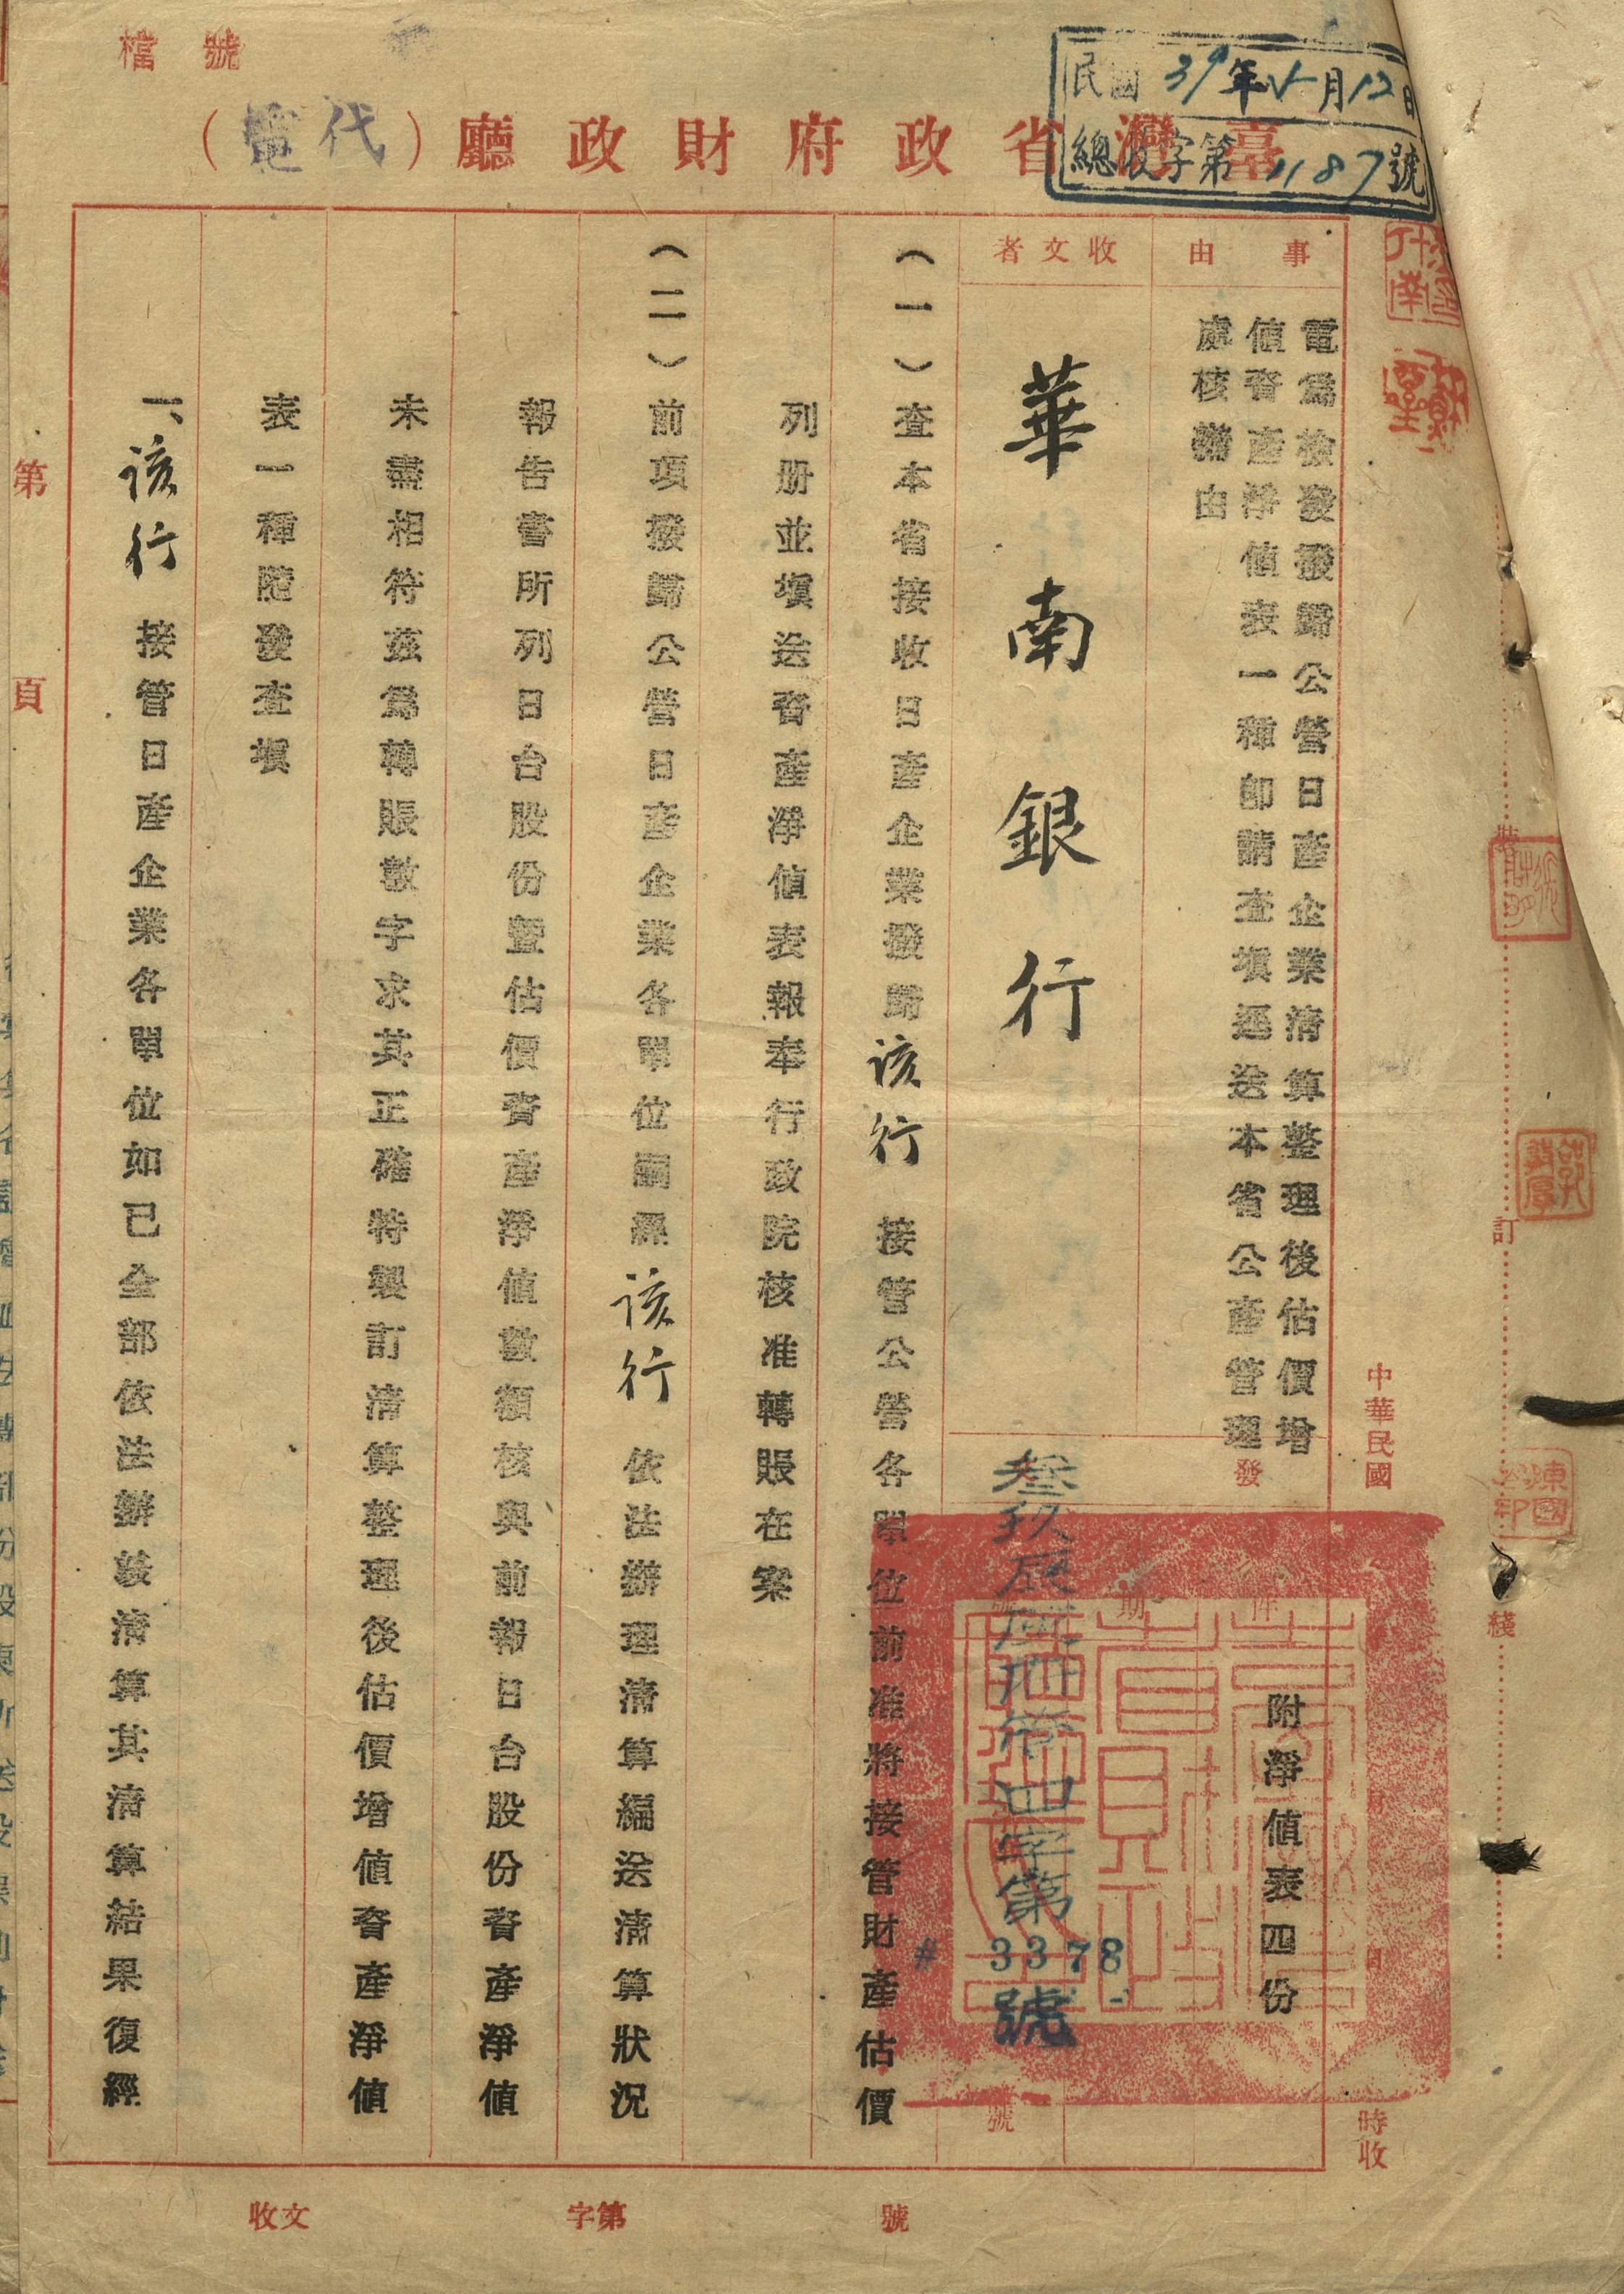 檔號
臺灣省政府財政廳（代電）
民國39年5月12日
總收字第1187號
事由
電爲檢發撥歸公營日產企業清算整理後估價增
值資產淨值表一種卽請查塡逕送本省公產管理
處核辦由
收文者
華南銀行
中華民國
發
附淨值表四份
叁玖辰
四字第
3378
號
時收
（一）查本省接收日產企業撥歸該行接管公營各單位前准將接管財產估價
列册並塡送資產淨值表報奉行政院核准轉賬在案
（二）前項撥歸公營日產企業各單位嗣經該行依法辦理清算編送清算狀況
報告書所列日台股份暨估價資產淨值數額核與前報日台股份資產淨值
未盡相符茲爲轉賬數字求其正確特製訂清算整理後估價增值資產淨值
表一種隨發查塡
一、該行接管日產企業各單位如已全部依法辦竣清算其清算結果復經
裝
訂
綫
第
頁
收文
字第
號